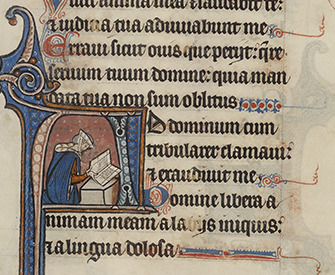 Vivet anima mea et laudabit te:
et iudicia tua adiuvabunt me
Erravi sicut ovis que periit: q̄re
servum tuum domine: quia man
data tua non sum oblitus
Ad dominum cum
tribularer clamavi:
et exaudivit me
Domine libera a
nimam meam a labiis iniquis:
et a lingua dolosa